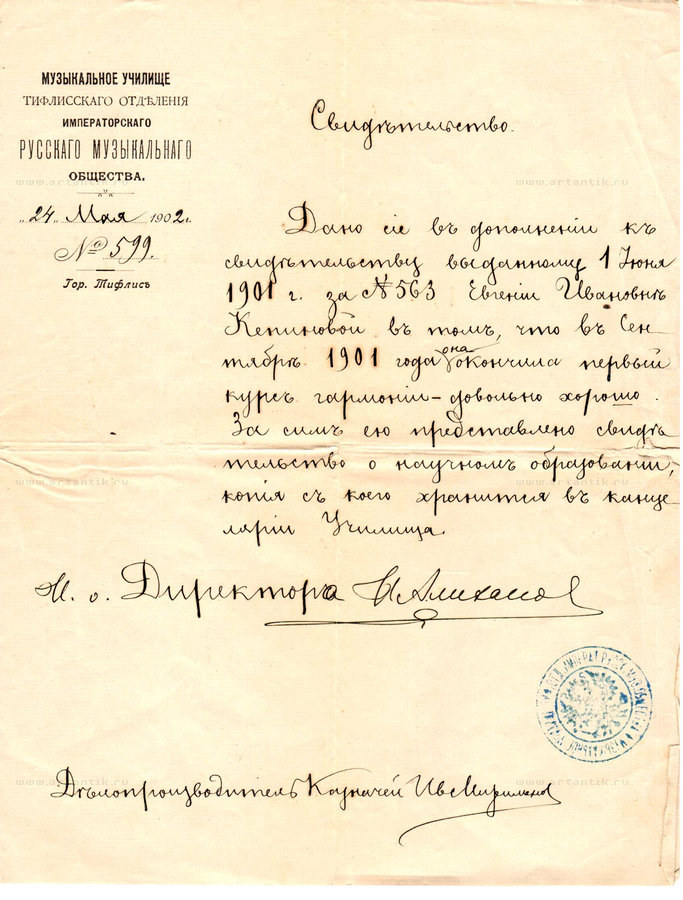 МУЗЫКАЛЬНОЕ УЧИЛИЩЕ
ТИФЛИССКАГО ОТДѢЛЕНІЯ
ИМПЕРАТОРСКАГО
РУССКАГО МУЗЫКАЛЬНАГО
ОБЩЕСТВА.
„24„ Мая 1902 г.
№ 599.
Гор. Тифлисъ
Свидѣтельство.
Дано сіе въ дополненіи къ
свидѣтельству выданному 1 Іюня
1901 г. за № 563 Евгеніи Ивановнѣ
Кепиновой въ томъ, что въ Сен-
тябрѣ 1901 года она окончила первый
курсъ гармоніи – довольно хорошо.
За симъ ею представлено свидѣ
тельство о научномъ образованіи,
копія съ коего хранится въ канце
ляріи Училища.
И. о. Директора
Дѣлопроизводитель Казначей Ив
www.artantik.ru
www.artantik.ru
www.artantik.ru
www.artantik.ru
www.artantik.ru
www.artantik.ru